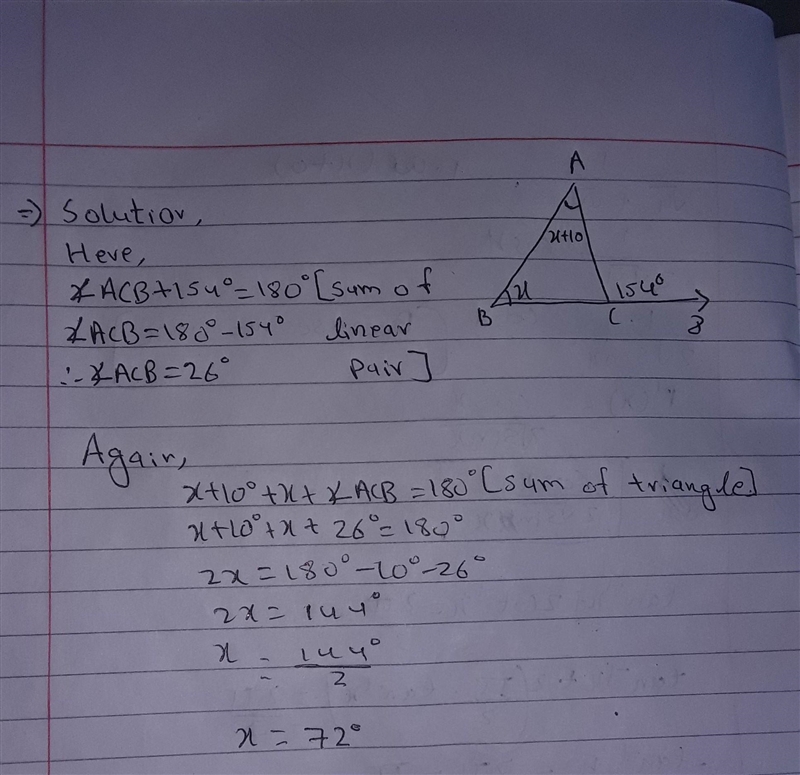 A
⇒ Solution,
x+10
Here,
∡ACB+154°=180° [sum of
x
154°
B
C
∡ACB=180°-154° linear
∴ ∡ACB=26° Pair]
Again,
x+10°+x+∡ACB=180° [sum of triangle]
x+10°+x+26°=180°
2x=180°-10°-26°
2x=144°
x = 144°
2
x = 72°